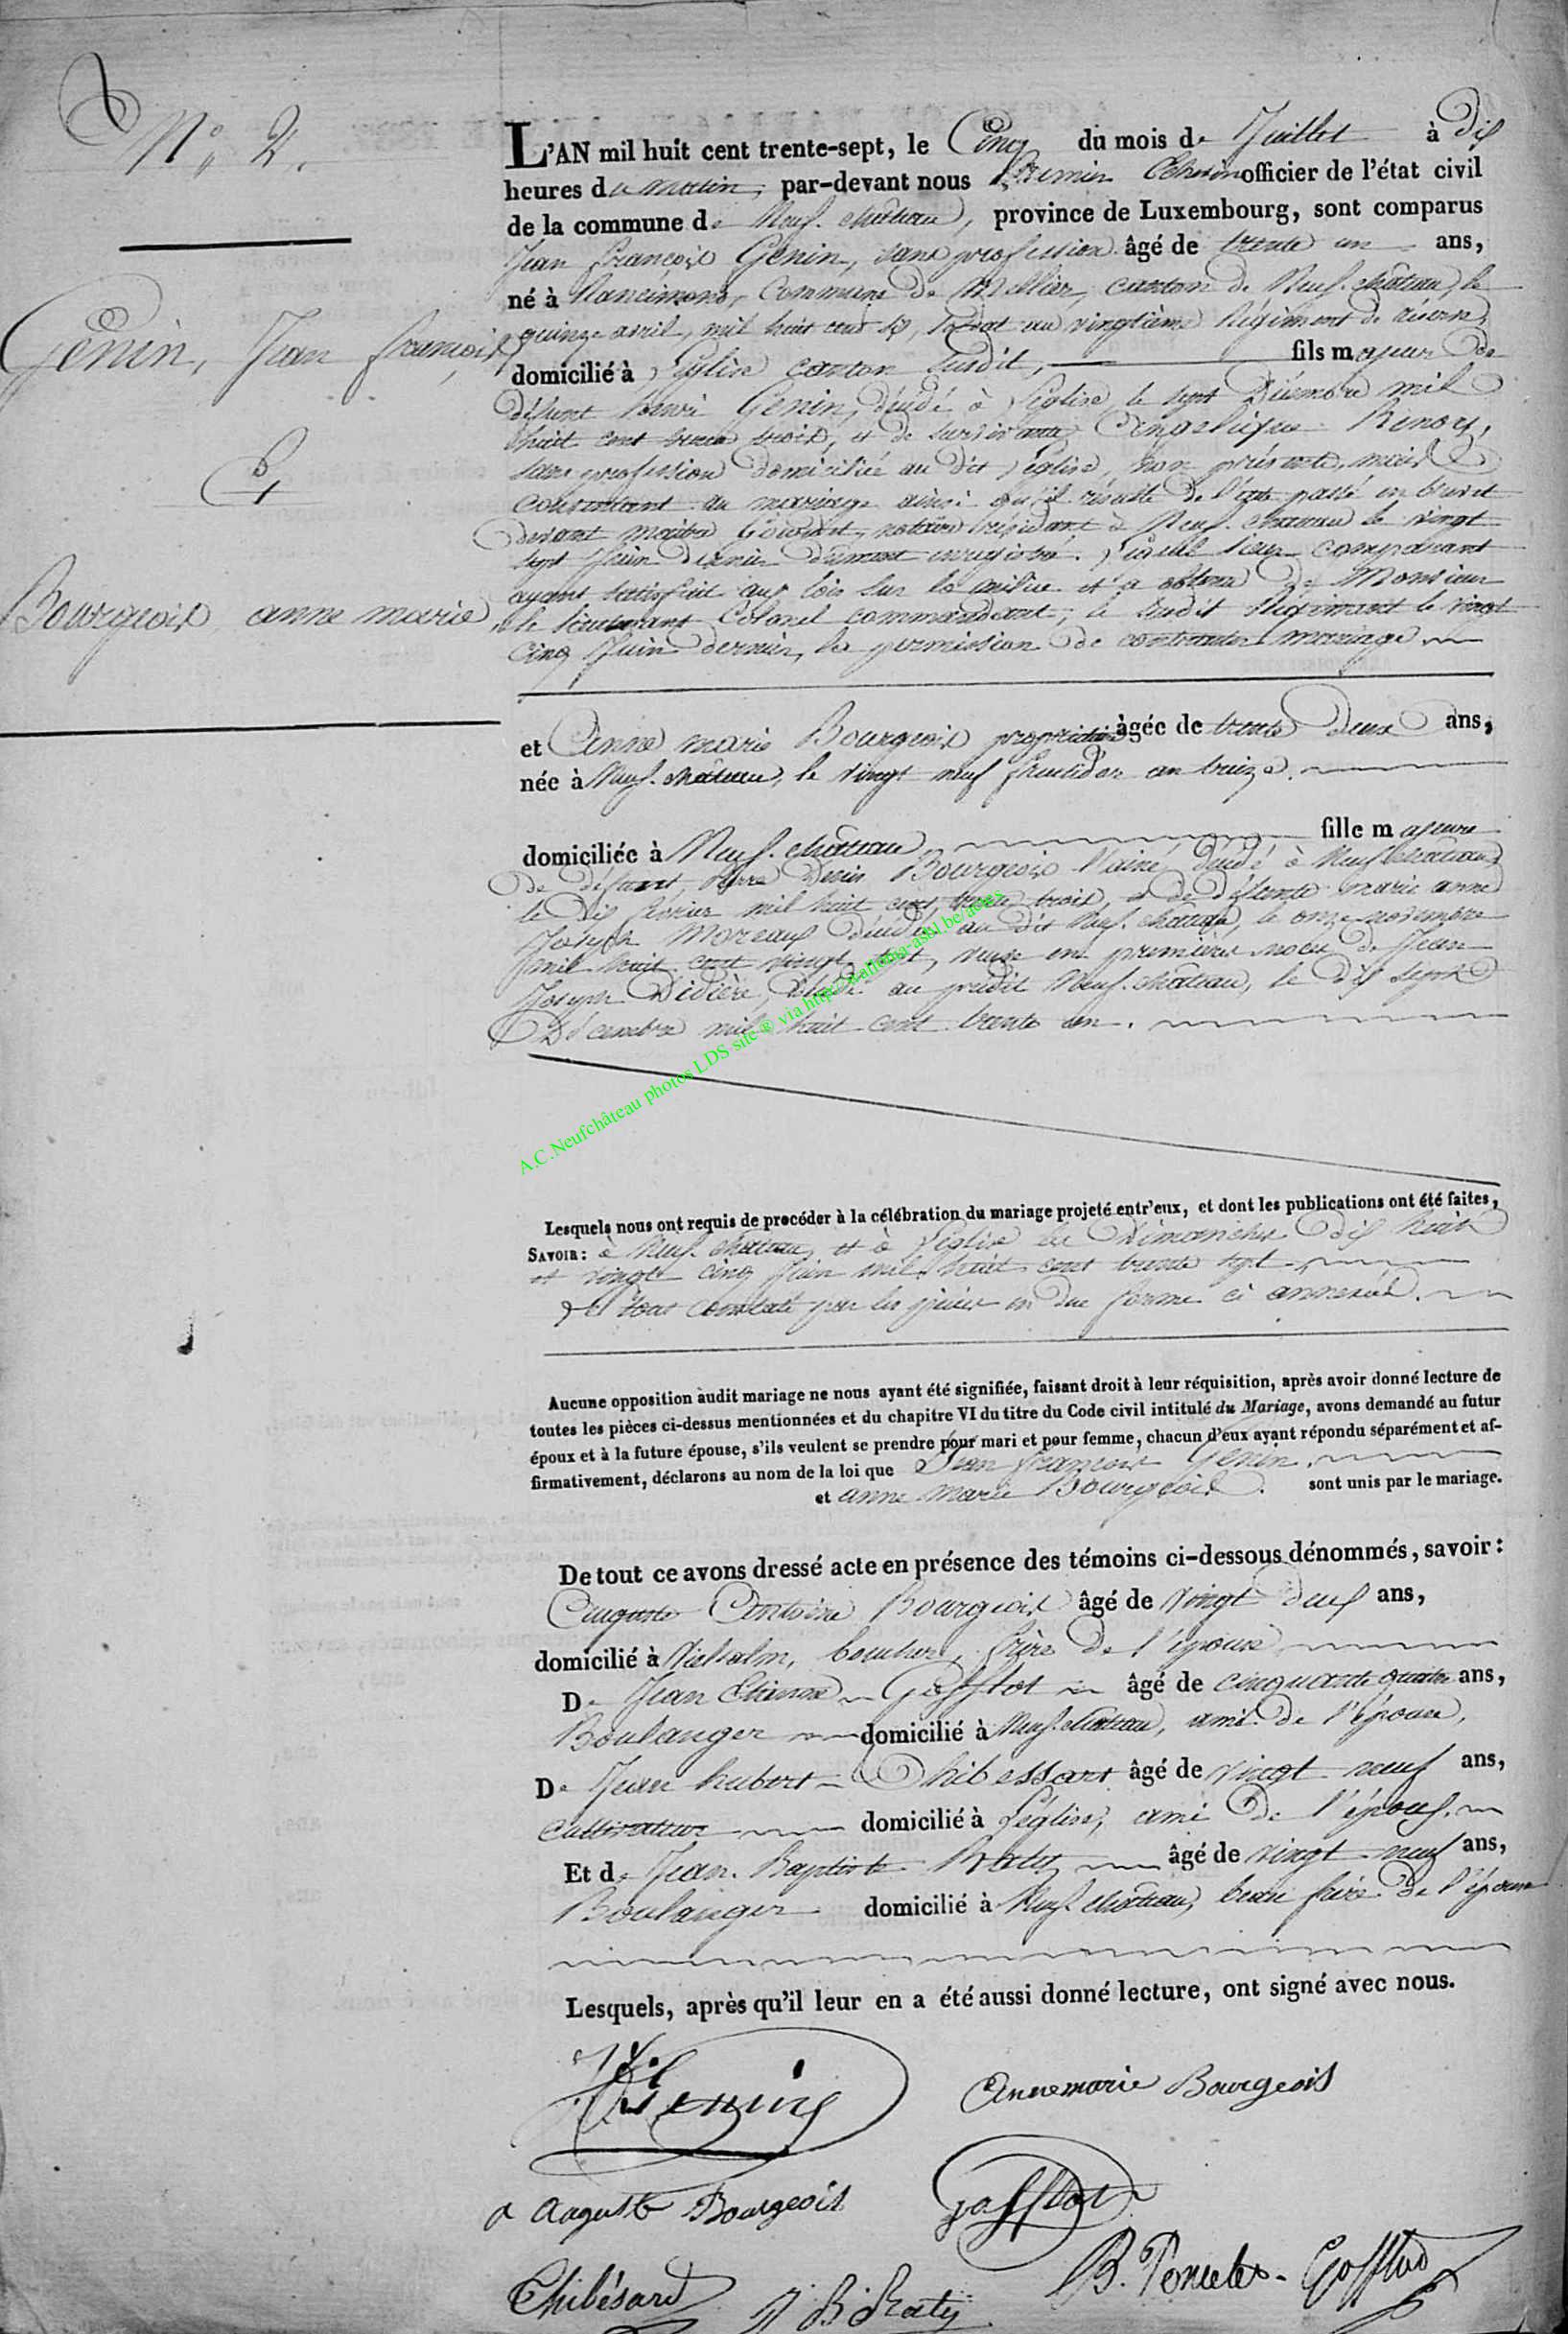 N° 2.
Genin, Jean françois
&
Bourgeois anne marie
L'AN mil huit cent trente-sept, le Cinq du mois de Juillet à dix
heures du matin, par-devant nous Premier Echevin officier de l'état civil
de la commune de Neuf-château, province de Luxembourg, sont comparus
Jean françois Genin, sans profession âgé de trente un ans,
né à Rancimont, Commune de Mellier, canton de Neuf-château, le
quinze avril, mil huit cent six, soldat au vingtième Régiment de réserve,
domicilié à Léglise canton susdit, fils majeur de
défunt Henri Genin, décédé à Léglise le sept Décembre mil
huit cent trente trois, et de survivante Angelique Renoy,
sans profession domiciliée au dit Léglise, non présente, mais
consentant au mariage ainsi qu'il résulte de l'acte passé en brevet
devant Maître notaire résidant à Neuf-château le vingt
sept Juin dernier dument enregistré. comparant
ayant satisfait aux lois sur la milice et a obtenu de Monsieur
le lieutenant Colonel commandant, le susdit Régiment le vingt
cinq Juin dernier, la permission de contracter mariage
et Anne marie Bourgeois propriétaire âgée de trente deux ans,
née à Neuf-château, le vingt neuf fructidor an treize.
domiciliée à Neuf-château, fille majeure
de défunt Pierre Denis Bourgeois l'ainé, décédé à Neufchâteau
le dix février mil huit cent trente trois, et de défunte marie anne
Joseph Moreaux décédée au dit Neuf-château, le onze novembre
mil huit cent vingt sept, veuve en premières noces de Jean
Joseph Didière, décédé au predit Neuf-château, le dix sept
Décembre mil huit cent trente un.
A.C.Neufchâteau photos LDS site ® via http://wallonia-asbl.be/actes
Lesquels nous ont requis de procéder à la célébration du mariage projeté entr'eux, et dont les publications ont été faites,
SAVOIR: à Neuf-château et à Léglise les Dimanches dix huit
et vingt cinq Juin mil huit cent trente sept
le tout constaté par les pièces en due forme ci annexées.
Aucune opposition audit mariage ne nous ayant été signifiée, faisant droit à leur réquisition, après avoir donné lecture de
toutes les pièces ci-dessus mentionnées et du chapitre VI du titre du Code civil intitulé du Mariage, avons demandé au futur
époux et à la future épouse, s'ils veulent se prendre pour mari et pour femme, chacun d'eux ayant répondu séparément et af-
firmativement, déclarons au nom de la loi que Jean françois Genin
et anne marie Bourgeois. sont unis par le mariage.
De tout ce avons dressé acte en présence des témoins ci-dessous dénommés, savoir:
Auguste Antoine Bourgeois âgé de vingt deux ans,
domicilié à Vielsalm, boucher, frère de l'épouse
De Jean Etienne Gofflot âgé de cinquante quatre ans,
Boulanger domicilié à Neuf-château, ami de l'épouse,
De Jean hubert Thibessart âgé de vingt neuf ans,
Cultivateur domicilié à Léglise, ami de l'époux,
Et de Jean Baptiste Raty âgé de vingt neuf ans,
Boulanger domicilié à Neuf-château, beau frère de l'épouse
Lesquels, après qu'il leur en a été aussi donné lecture, ont signé avec nous.
Genin
Annemarie Bourgeois
a auguste Bourgeois
Gofflot
Thibésard
J B Raty
B. Poncelet-Gofflot